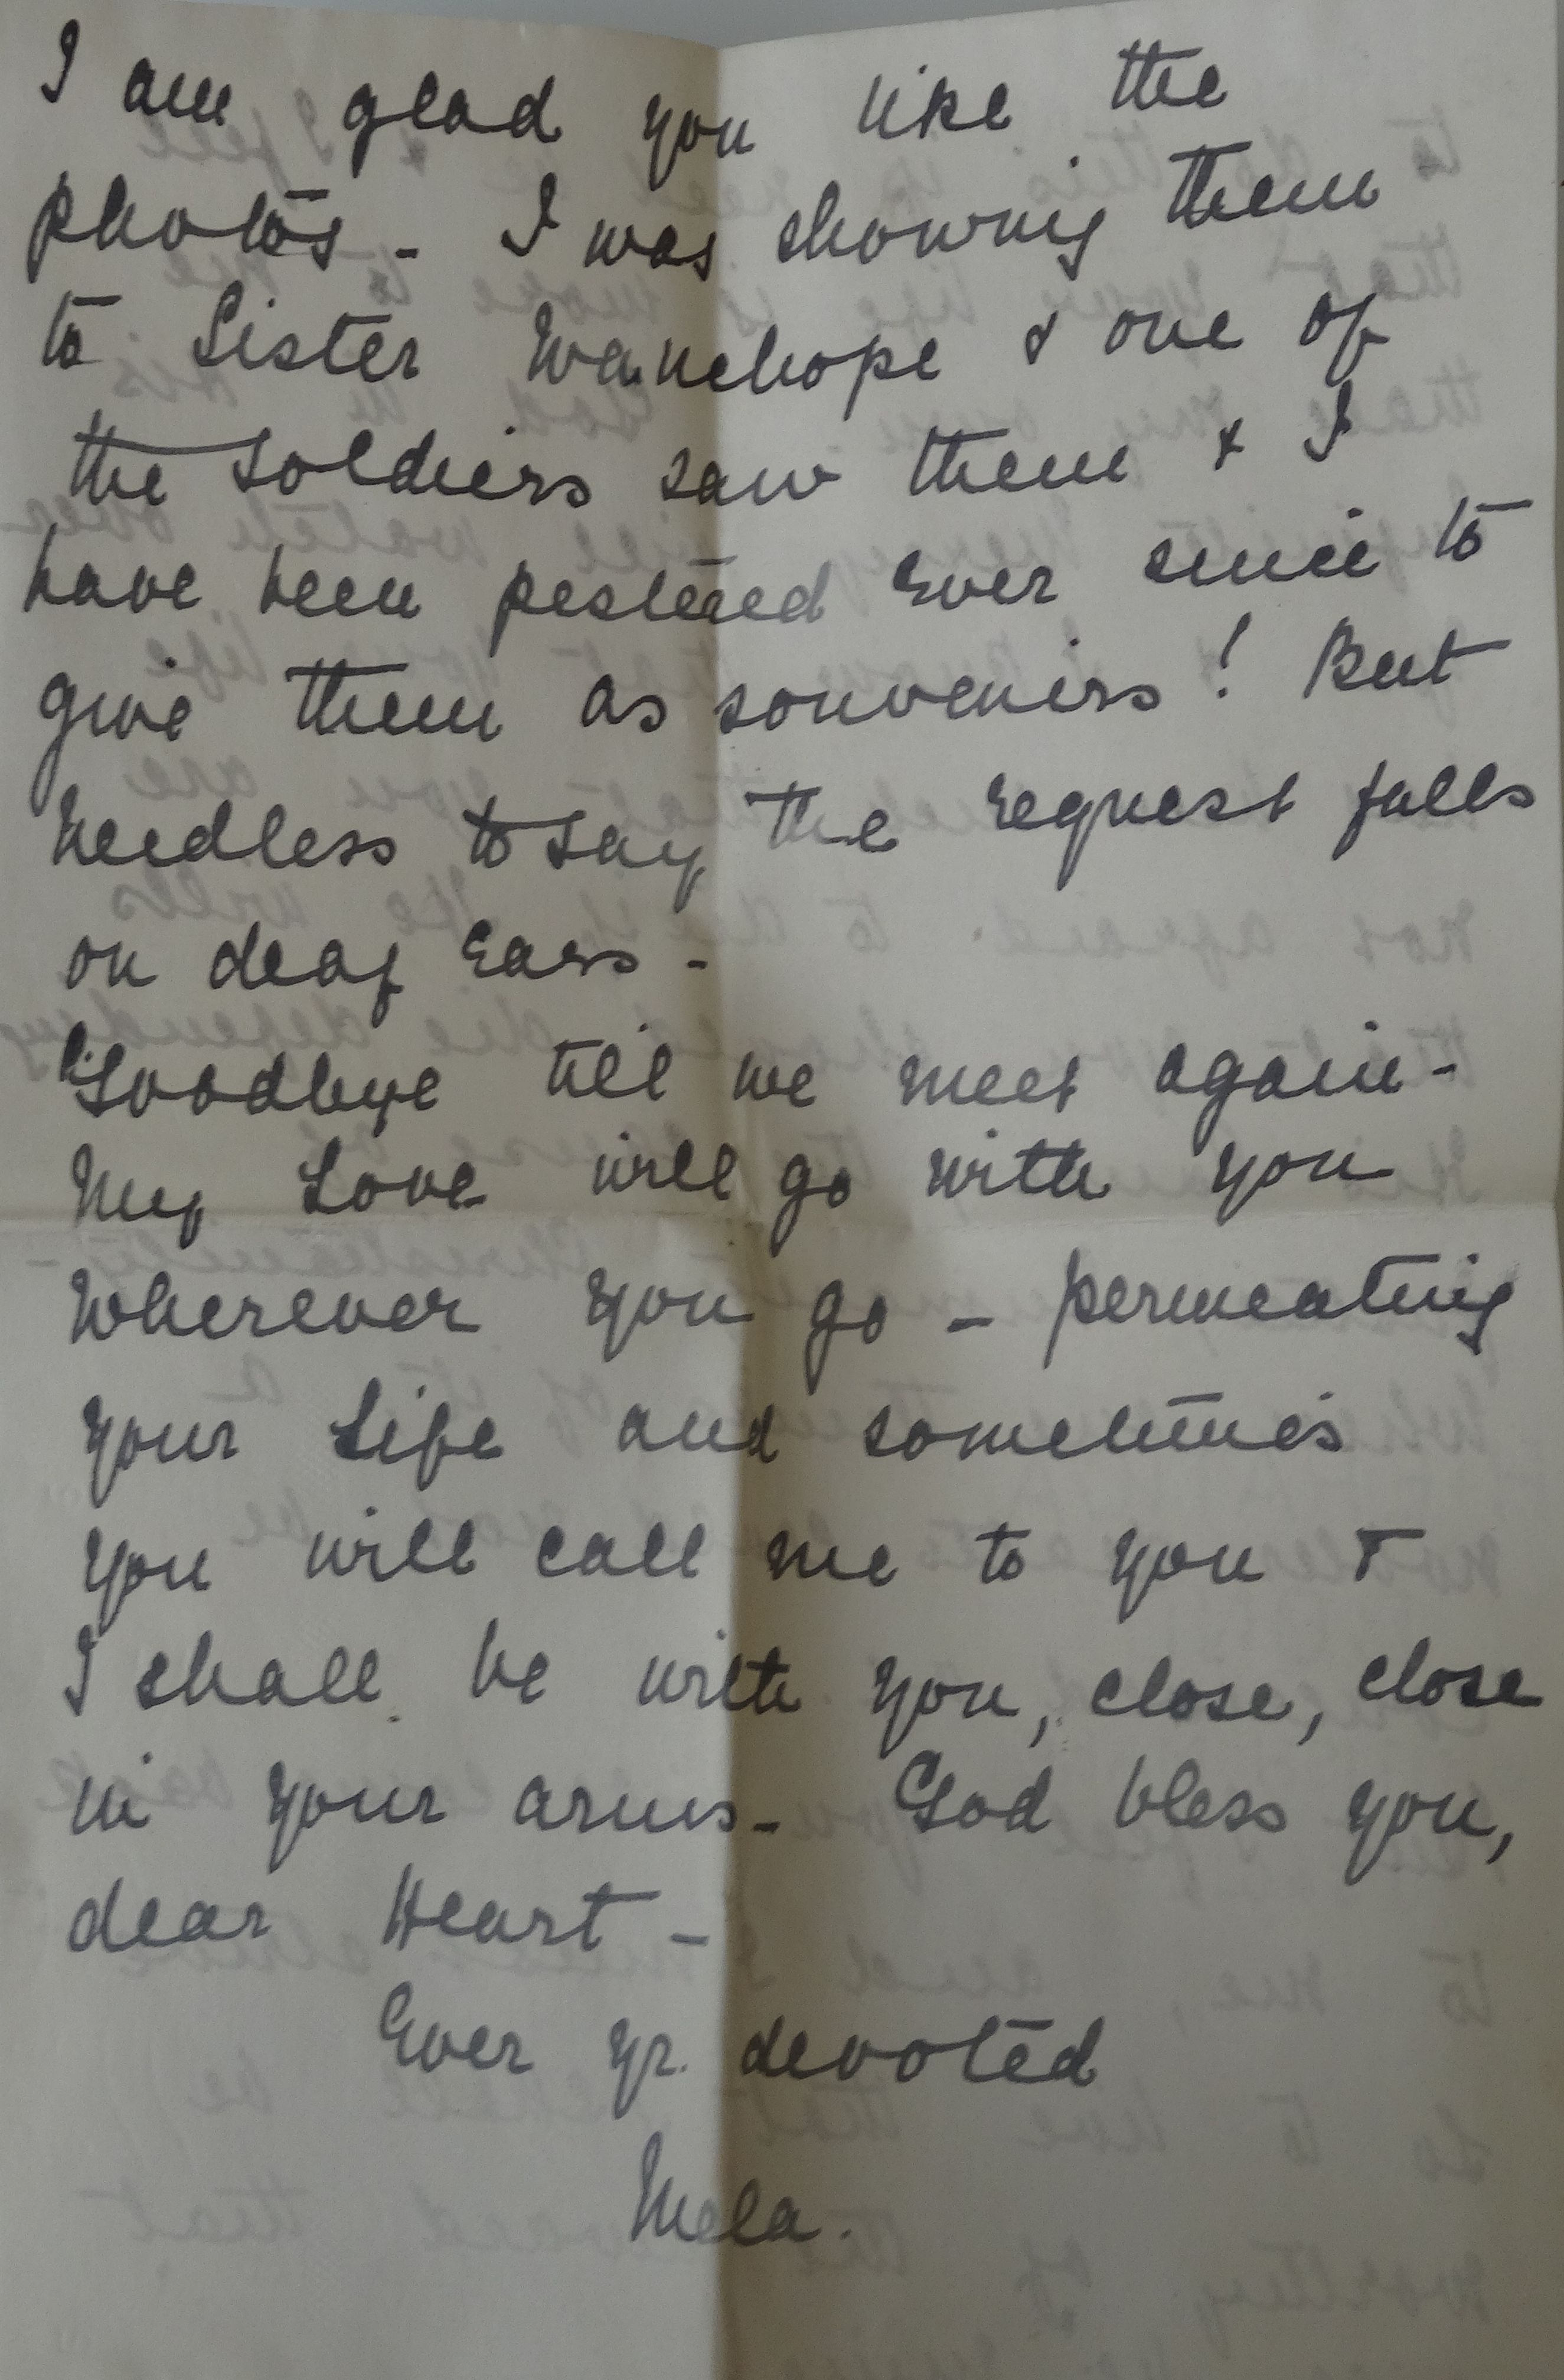 I am glad you like the
photos - I was showing them
to Sister Wauchope & one of
the soldiers saw them & I
have been pestered ever since to
give them as souvenirs! But
needless to say the request falls
on deaf ears -
Goodbye till we meet again -
My Love will go with you
wherever you go - permeating
your Life and sometimes
you will call me to you &
I shall be with you, close, close
in your arms - God bless you,
dear Heart -
Ever yr. devoted
Mela.